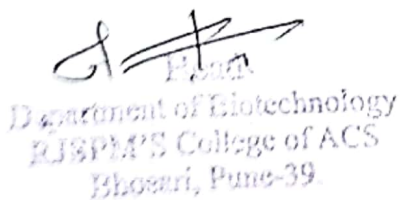 Head
Department of Biotechnology
RJSPM'S College of ACS
Bhosari, Pune-39.